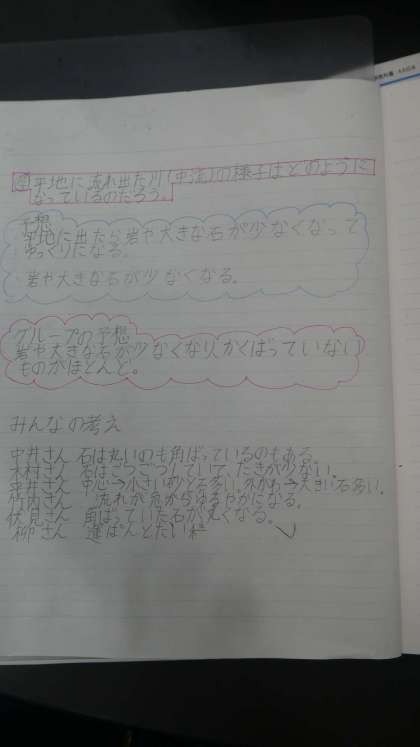 平地に流れ出た川(中流)の様子はどのように
なっているのだろう。
予想
平地に出たら岩や大きな石が少なくなって
ゆっくりになる。
岩や大きな石が少なくなる。
グループの予想
岩や大きな石が少なくなり、かくばっていない
ものがほとんど。
みんなの考え
中井さん 石は丸いのも角ばっているのもある。
木村さん 石はごつごつしていて、たきが少ない。
中井さん 中心→小さい砂と石多い。外がわ→大きい石多い。
竹内さん 流れが急からゆるやかになる。
伏見さん 角ばっていた石が丸くなる。
柳さん 逢ばんとだい